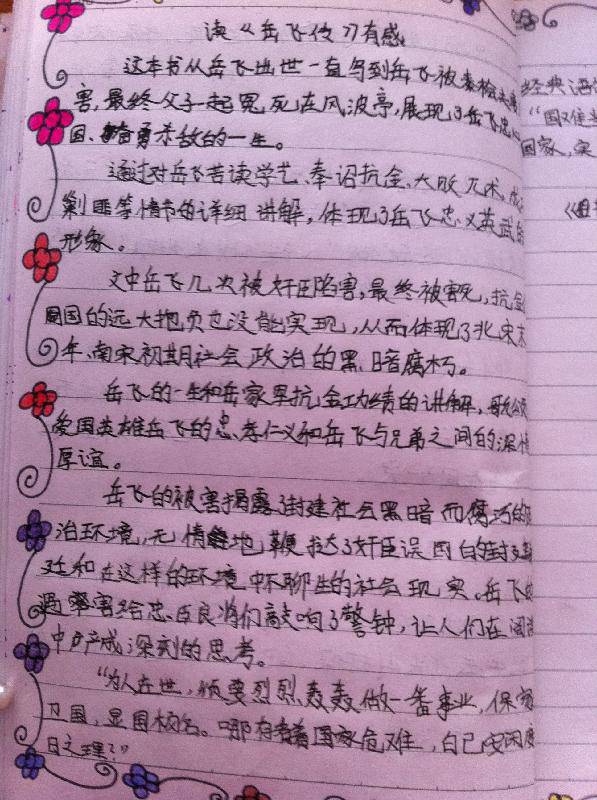 读《岳飞传》有感
这本书从岳飞出世一直写到岳飞被秦桧
害,最终父子一起冤死在风波亭,展现了岳飞忠心
国、奋勇杀敌的一生。
通过对岳飞苦读学艺、奉诏抗金、大败兀术、
剿匪等情节的详细讲解,体现了岳飞忠义英武的
形象。
文中岳飞几次被奸臣陷害,最终被害死,抗金
国的远大抱负也没能实现,从而体现了北宋末
年、南宋初期社会政治的黑暗腐朽。
岳飞的一生和岳家军抗金功绩的讲解,
爱国英雄岳飞的忠、孝、仁义和岳飞与兄弟之间的深情
厚谊。
岳飞的被害揭露了封建社会黑暗而腐朽的
治环境,无情地鞭挞了奸臣误国的封建
和在这样的环境中不聊生的社会现实。岳飞的
遇害给忠臣良将们敲响了警钟,让人们在阅读
中产成深刻的思考。
“为人在世,须要烈烈轰轰做一番事业,保家
卫国,显国扬名。哪有看着国家危难,自己安闲度
日之理?”
经典语
“国难当
国家,实
《